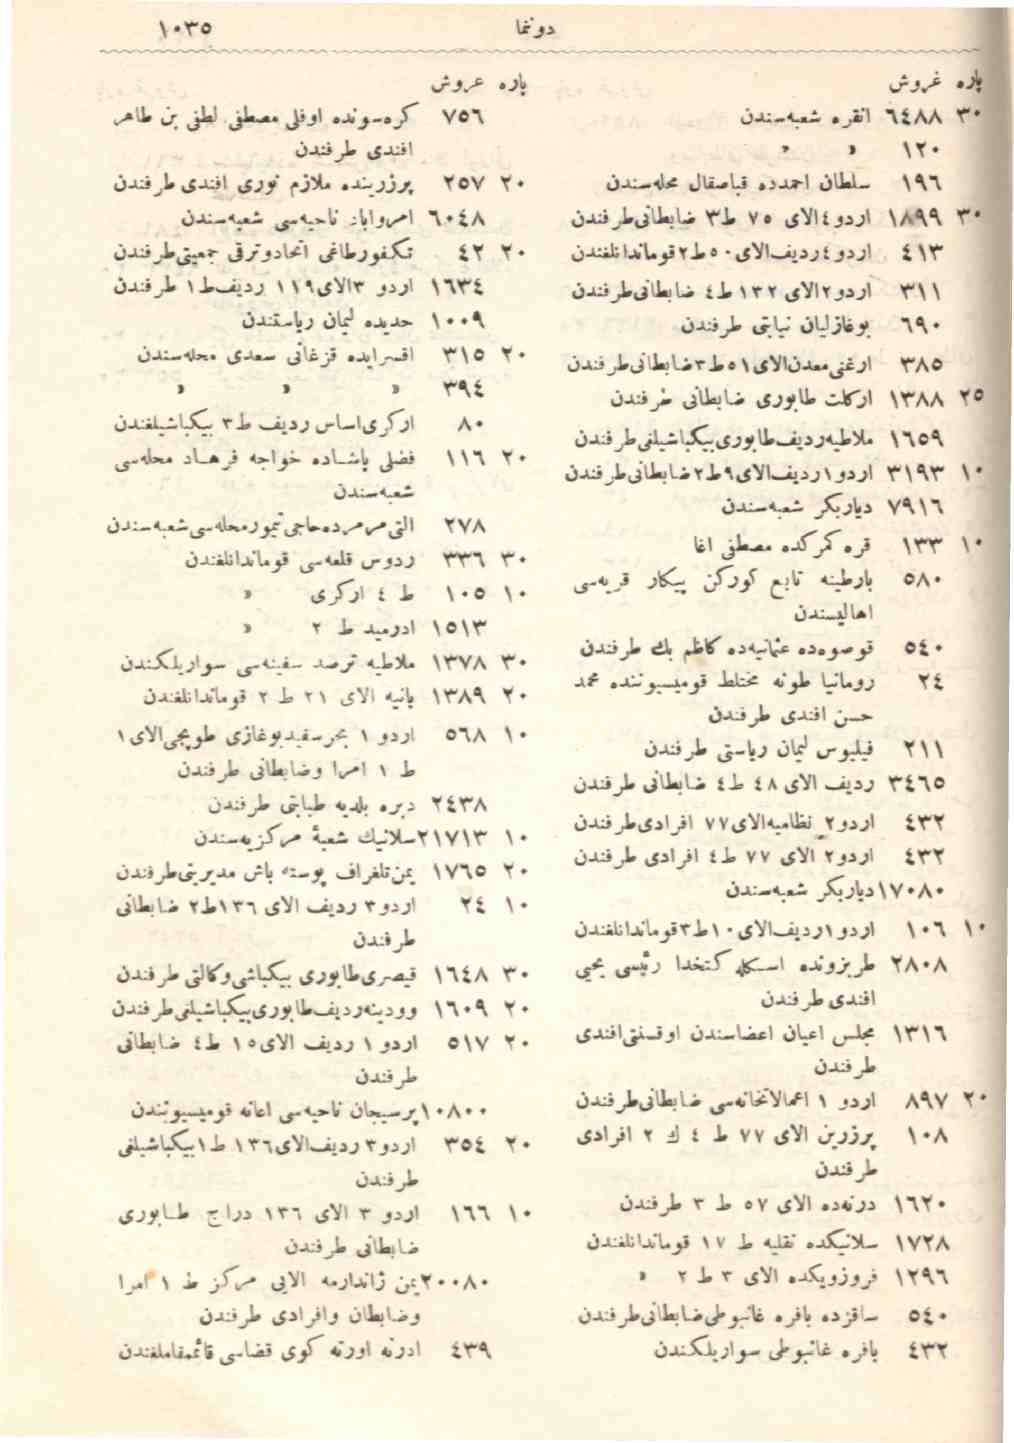 دوننما ١٠٣٥
پاره غروش
٣٠ ٦٤٨٨ انقره شعبه‌سندن
١٢٠ » »
١٩٦ سلطان احمدده قباصقال محله‌سندن
٣٠ ١٨٩٩ اردو ٤ الای ٧٥ ط ٣ ضابطانی طرفندن
٤١٣ اردو ٤ ردیف الای ٥٠ ط ٢ قوماندانلغندن
٣١١ اردو ٢ الای ١٣٢ ط ٤ ضابطانی طرفندن
٦٩٠ بوغازلیان نیابتی طرفندن
٣٨٥ ارغنی معدن الای ٥١ ط ٣ ضابطانی طرفندن
٢٥ ١٣٨٨ ارکلت طابوری ضابطانی طرفندن
١٦٥٩ ملاطیه ردیف طابوری بیکباشیلغی طرفندن
١٠ ٣١٩٣ اردو ١ ردیف الای ٩ ط ٢ ضابطانی طرفندن
٧٩١٦ دیاربکر شعبه‌سندن
١٠ ١٣٣ قره کمرکده مصطفی اغا
٥٨٠ بارطینه تابع کورکن پیکار قریه‌سی
اهالیسندن
٥٤٠ قوصوه‌ده عثمانیه‌ده کاظم بك طرفندن
٢٤ رومانیا طونه مختلط قومیسیوننده محمد
حسن افندی طرفندن
٢١١ فیلیوس لیمان ریاستی طرفندن
٣٤٦٥ ردیف الای ٤٨ ط ٤ ضابطانی طرفندن
٤٣٢ اردو ٢ نظامیه الای ٧٧ افرادی طرفندن
٤٣٢ اردو ٢ الای ٧٧ ط ٤ افرادی طرفندن
١٧٠٨٠ دیاربکر شعبه‌سندن
١٠ ١٠٦ اردو ١ ردیف الای ١٠ ط ٣ قوماندانلغندن
٢٨٠٨ طربزونده اسکله کتخدا رئیسی یحیی
افندی طرفندن
١٣١٦ مجلس اعیان اعضاسندن اوقسنتی افندی
طرفندن
٢٠ ٨٩٧ اردو ١ اعمالاتخانه‌سی ضابطانی طرفندن
١٠٨ پرزرین الای ٧٧ ط ٤ ك ٢ افرادی
طرفندن
١٦٢٠ درنه‌ده الای ٥٧ ط ٣ طرفندن
١٧٢٨ سلانیکده نقلیه ط ١٧ قوماندانلغندن
١٢٩٦ فروزویکده الای ٣ ط ٢ »
٥٤٠ ساقزده بافره غانبوطی ضابطانی طرفندن
٤٣٢ بافره غانبوطی سواریلکندن
پاره غروش
٧٥٦ کره‌سونده اوفلی مصطفی لطفی بن طاهر
افندی طرفندن
٢٠ ٢٥٧ پرزرینده ملازم نوری افندی طرفندن
٦٠٤٨ ناحیه‌سی شعبه‌سندن
٢٠ ٤٢ تکفورطاغی اتحاد و ترقی جمعیتی طرفندن
١٦٣٤ اردو ٣ الای ١١٩ ردیف ط ١ طرفندن
١٠٠٩ حدیده لیمان ریاستندن
٢٠ ٣١٥ اقسرایده قزغانی سعدی محله‌سندن
٣٩٤ » » »
٨٠ ارکری اساس ردیف ط ٣ بیکباشیلغندن
٢٠ ١١٦ فضلی پاشاده خواجه فرهاد محله‌سی
شعبه‌سندن
٢٧٨ التی مرمرده حاجی تیمور محله‌سی شعبه‌سندن
٣٠ ٣٣٦ ردوس قلعه‌سی قوماندانلغندن
١٠ ١٠٥ ط ٤ ارکری »
١٥١٣ ادرمید ط ٢ »
٣٠ ١٣٧٨ ملاطیه ترصد سفینه‌سی سواریلکندن
٢٠ ١٣٨٩ یانیه الای ٢١ ط ٢ قوماندانلغندن
١٠ ٥٦٨ اردو ١ بحرسفید بوغازی طوپجی الای ١
ط ١ امرا وضابطانی طرفندن
٢٤٣٨ دبره بلدیه طبابتی طرفندن
١٠ ٢١٧١٣ سلانیك شعبهٔ مرکزیه‌سندن
٢٠ ١٧٦٥ یمن تلغراف پوسته باش مدیریتی طرفندن
١٠ ٢٤ اردو ٣ ردیف الای ١٣٦ ط ٢ ضابطانی
طرفندن
٣٠ ١٦٤٨ قیصری طابوری بیکباشی وکالتی طرفندن
٢٠ ١٦٠٩ وودینه ردیف طابوری بیکباشیلغی طرفندن
٢٠ ٥١٧ اردو ١ ردیف الای ١٥ ط ٤ ضابطانی
طرفندن
١٠٨٠٠ پرسیجان ناحیه‌سی اعانه قومیسیوتندن
٢٠ ٣٥٤ اردو ٣ ردیف الای ١٣٦ ط ١ بیکباشیلغی
طرفندن
١٠ ١٦٦ اردو ٣ الای ١٣٦ دراج طابوری
ضابطانی طرفندن
٢٠٠٨٠ یمن ژاندارمه الایی مرکز ط ١ امرا
وضابطان وافرادی طرفندن
٤٣٩ ادرنه اورته کوی قضاسی قائممقاملغندن